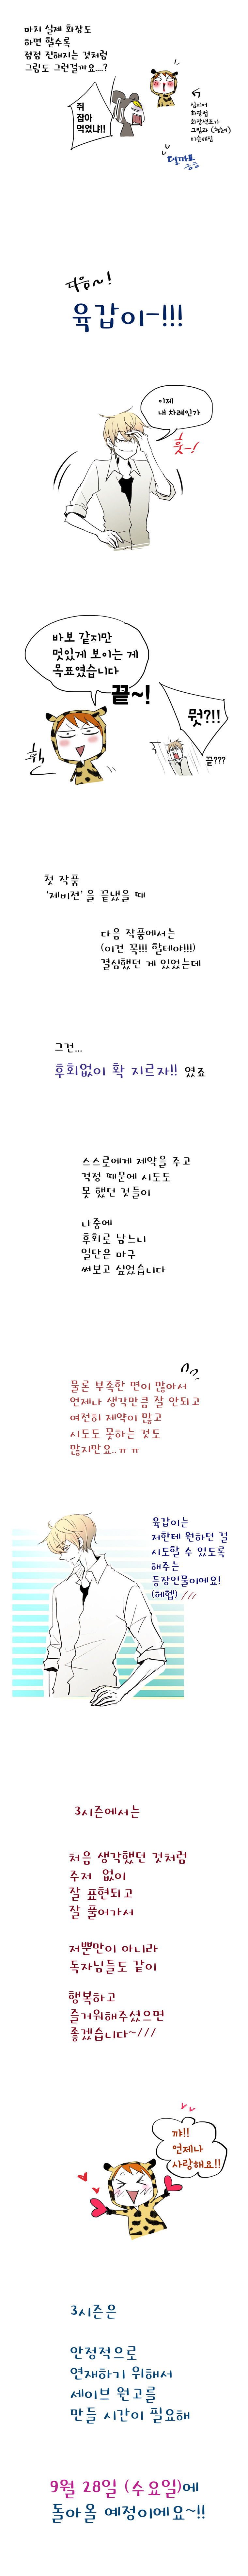 마치 실제 화장도
하면 할수록
점점 진해지는 것처럼
그림도 그런걸까요...?
쥐
잡아
먹었냐!!
심지어
화장법
화장색조가
그림과 (현재)
비슷해짐
다음~!
육갑이-!!!
이제
내 차례인가
훗-!
바보 같지만
멋있게 보이는 게
목표였습니다
끝~!
휙
뭣?!!
끝???
첫 작품
'제비전'을 끝냈을 때
다음 작품에서는
(이건 꼭!!! 할테야!!!)
결심했던 게 있었는데
그건...
후회없이 확 지르자!! 였죠
스스로에게 제약을 주고
걱정 때문에 시도도
못 했던 것들이
나중에
후회로 남느니
일단은 마구
써보고 싶었습니다
물론 부족한 면이 많아서
언제나 생각만큼 잘 안되고
여전히 제약이 많고
시도도 못하는 것도
많지만요..ㅠㅠ
육갑이는
저한테 원하던 걸
시도할 수 있도록
해주는
등장인물이에요!
(헤헵) ///
3시즌에서는
처음 생각했던 것처럼
주저 없이
잘 표현되고
잘 풀어가서
저뿐만이 아니라
독자님들도 같이
행복하고
즐거워해주셨으면
좋겠습니다~///
꺄!!
언제나
사랑해요!!
3시즌은
안정적으로
연재하기 위해서
세이브 원고를
만들 시간이 필요해
9월 28일 (수요일)에
돌아올 예정이에요~!!